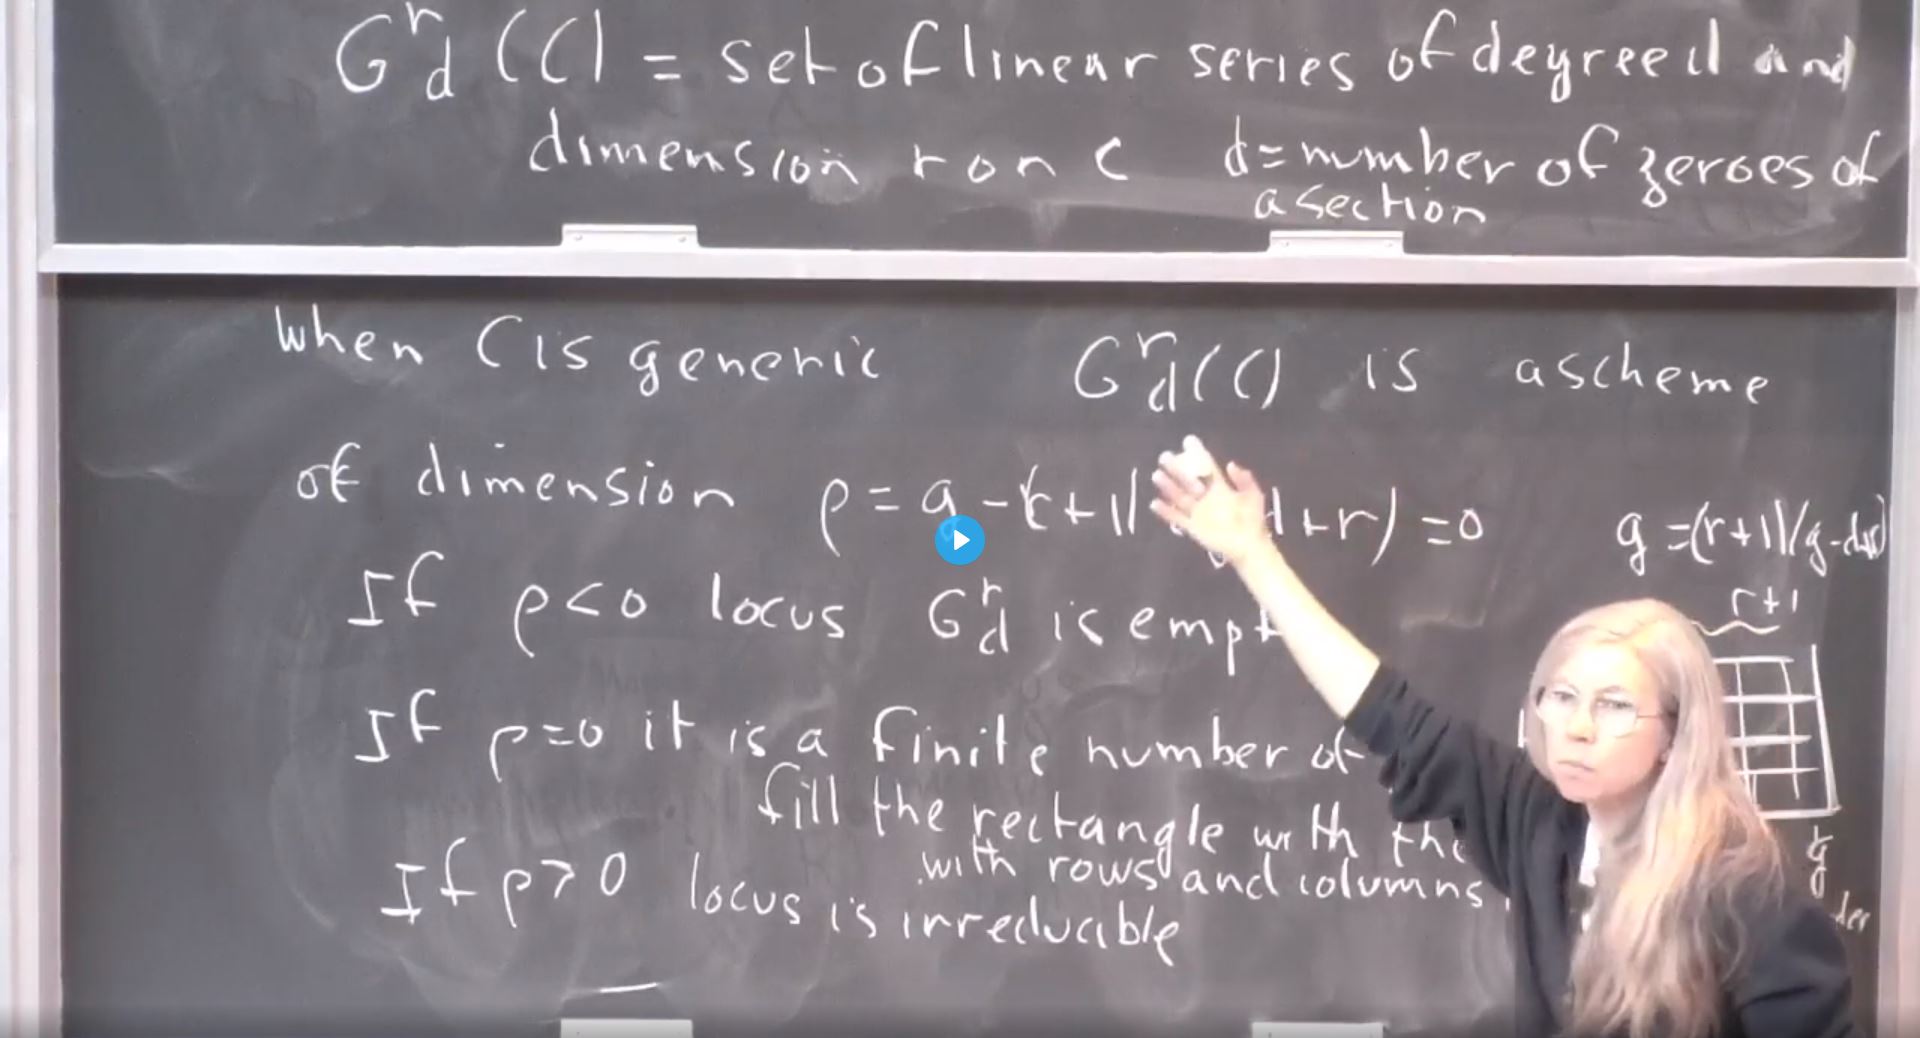 G^r_d (C) = set of linear series of degree d and
dimension r on C d = number of zeroes of
a section
When C is generic G^r_d(C) is a scheme
of dimension ρ = g - (r+1) d+r) = 0 g = (r+1)(g-d+r)
r+1
If ρ<0 locus G^r_d is
If ρ=0 it is a finite number of
fill the rectangle with the
with rows and columns
If ρ>0 locus is irreducible